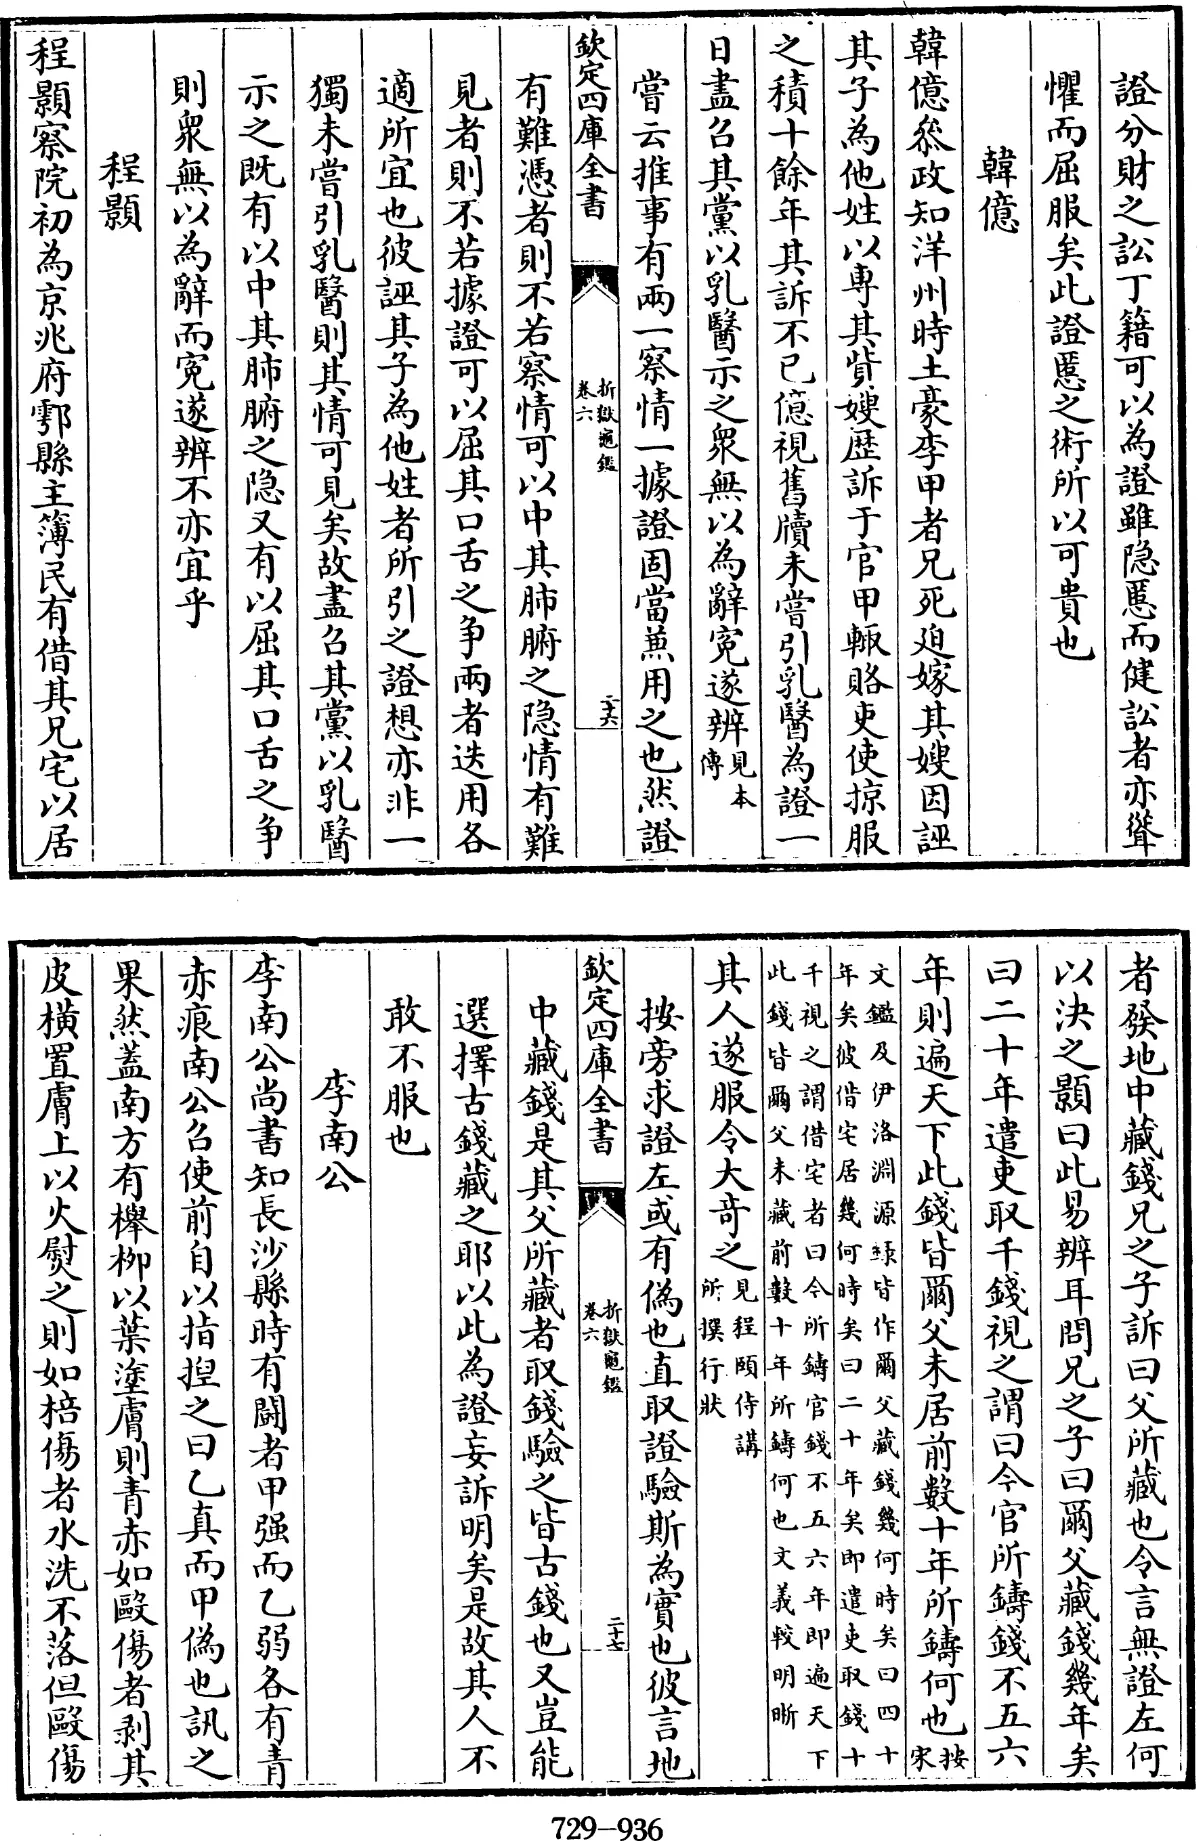 證分財之訟丁籍可以為證雖隐慝而健訟者亦聳
懼而屈服矣此證慝之術所以可貴也
韓億
韓億叅政知洋州時土豪李甲者兄死廹嫁其嫂因誣
其子為他姓以専其貲嫂歴訴于官甲輙賂吏使掠服
之積十餘年其訴不已億視舊牘未嘗引乳醫為證一
日盡召其黨以乳醫示之衆無以為辭寃遂辨見本
傳
嘗云推事有兩一察情一據證固當兼用之也然證
欽定四庫全書
折獄龜鑑
卷六
二十六
有難憑者則不若察情可以中其肺腑之隐情有難
見者則不若據證可以屈其口舌之争兩者迭用各
適所宜也彼誣其子為他姓者所引之證想亦非一
獨未嘗引乳醫則其情可見矣故盡召其黨以乳醫
示之既有以中其肺腑之隐又有以屈其口舌之争
則衆無以為辭而寃遂辨不亦宜乎
程顥
程顥察院初為京兆府鄠縣主簿民有借其兄宅以居
者發地中藏錢兄之子訴曰父所藏也令言無證左何
以決之顥曰此易辨耳問兄之子曰爾父藏錢幾年矣
曰二十年遣吏取千錢視之謂曰今官所鑄錢不五六
年則遍天下此錢皆爾父未居前數十年所鑄何也按
宋
文鑑及伊洛淵源録皆作爾父藏錢幾何時矣曰四十
年矣彼借宅居幾何時矣曰二十年矣即遣吏取錢十
千視之謂借宅者曰今所鑄官錢不五六年即遍天下
此錢皆爾父未藏前數十年所鑄何也文義較明晰
其人遂服令大竒之見程頤侍講
所撰行狀
按旁求證左或有偽也直取證驗斯為實也彼言地
欽定四庫全書
折獄龜鑑
卷六
二十七
中藏錢是其父所藏者取錢驗之皆古錢也又豈能
選擇古錢藏之耶以此為證妄訴明矣是故其人不
敢不服也
李南公
李南公尚書知長沙縣時有鬬者甲强而乙弱各有青
赤痕南公召使前自以指揑之曰乙真而甲偽也訊之
果然蓋南方有櫸柳以葉塗膚則青赤如毆傷者剥其
皮橫置膚上以火熨之則如棓傷者水洗不落但毆傷
729-936